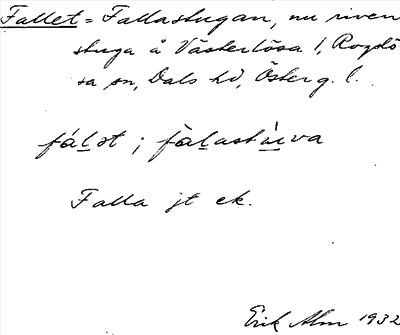 Fallet = Fallastugan, nu riven
stuga å Västerlösa 1, Rogslö
sa sn, Dals hd, Österg. l.
Falla jt ek.
Erik Alm 1932